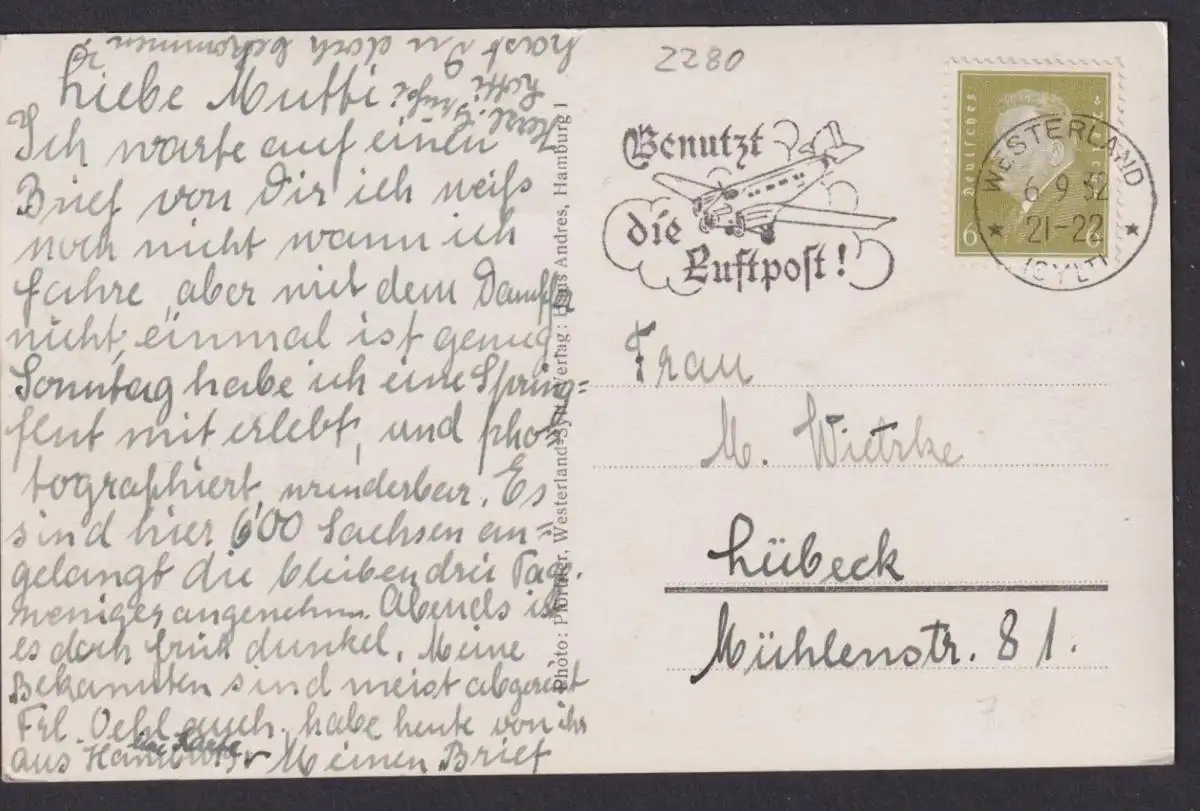 Liebe Mutti
Ich warte auf einen
Brief von Dir ich weiß
noch nicht wann ich
fahre, aber mit dem Dampfer
nicht, einmal ist genug
Sonntag habe ich eine Spring=
flut mit erlebt, und pho=
tographiert, wunderbar. Es
sind hier 600 Sachsen an=
gelangt die bleiben drei Tag.
weniger angenehm. Abends ist
es doch früh dunkel. Meine
Bekannten sind meist abgereist
Frl. Oehl auch, habe heute von ihr
eine Karte
aus Hamburg Meinen Brief
hast Du doch bekommen?
herzl. Grüße
Lotti
Photo: Pförtner, Westerland-Sylt Verlag: Hans Andres, Hamburg 1
2280
Benutzt
die
Luftpost!
Deutsches Reich
6 6
WESTERLAND
6.9.32
21-22
* (SYLT) *
Frau
M. Wietzke
Lübeck
Mühlenstr. 81.
7